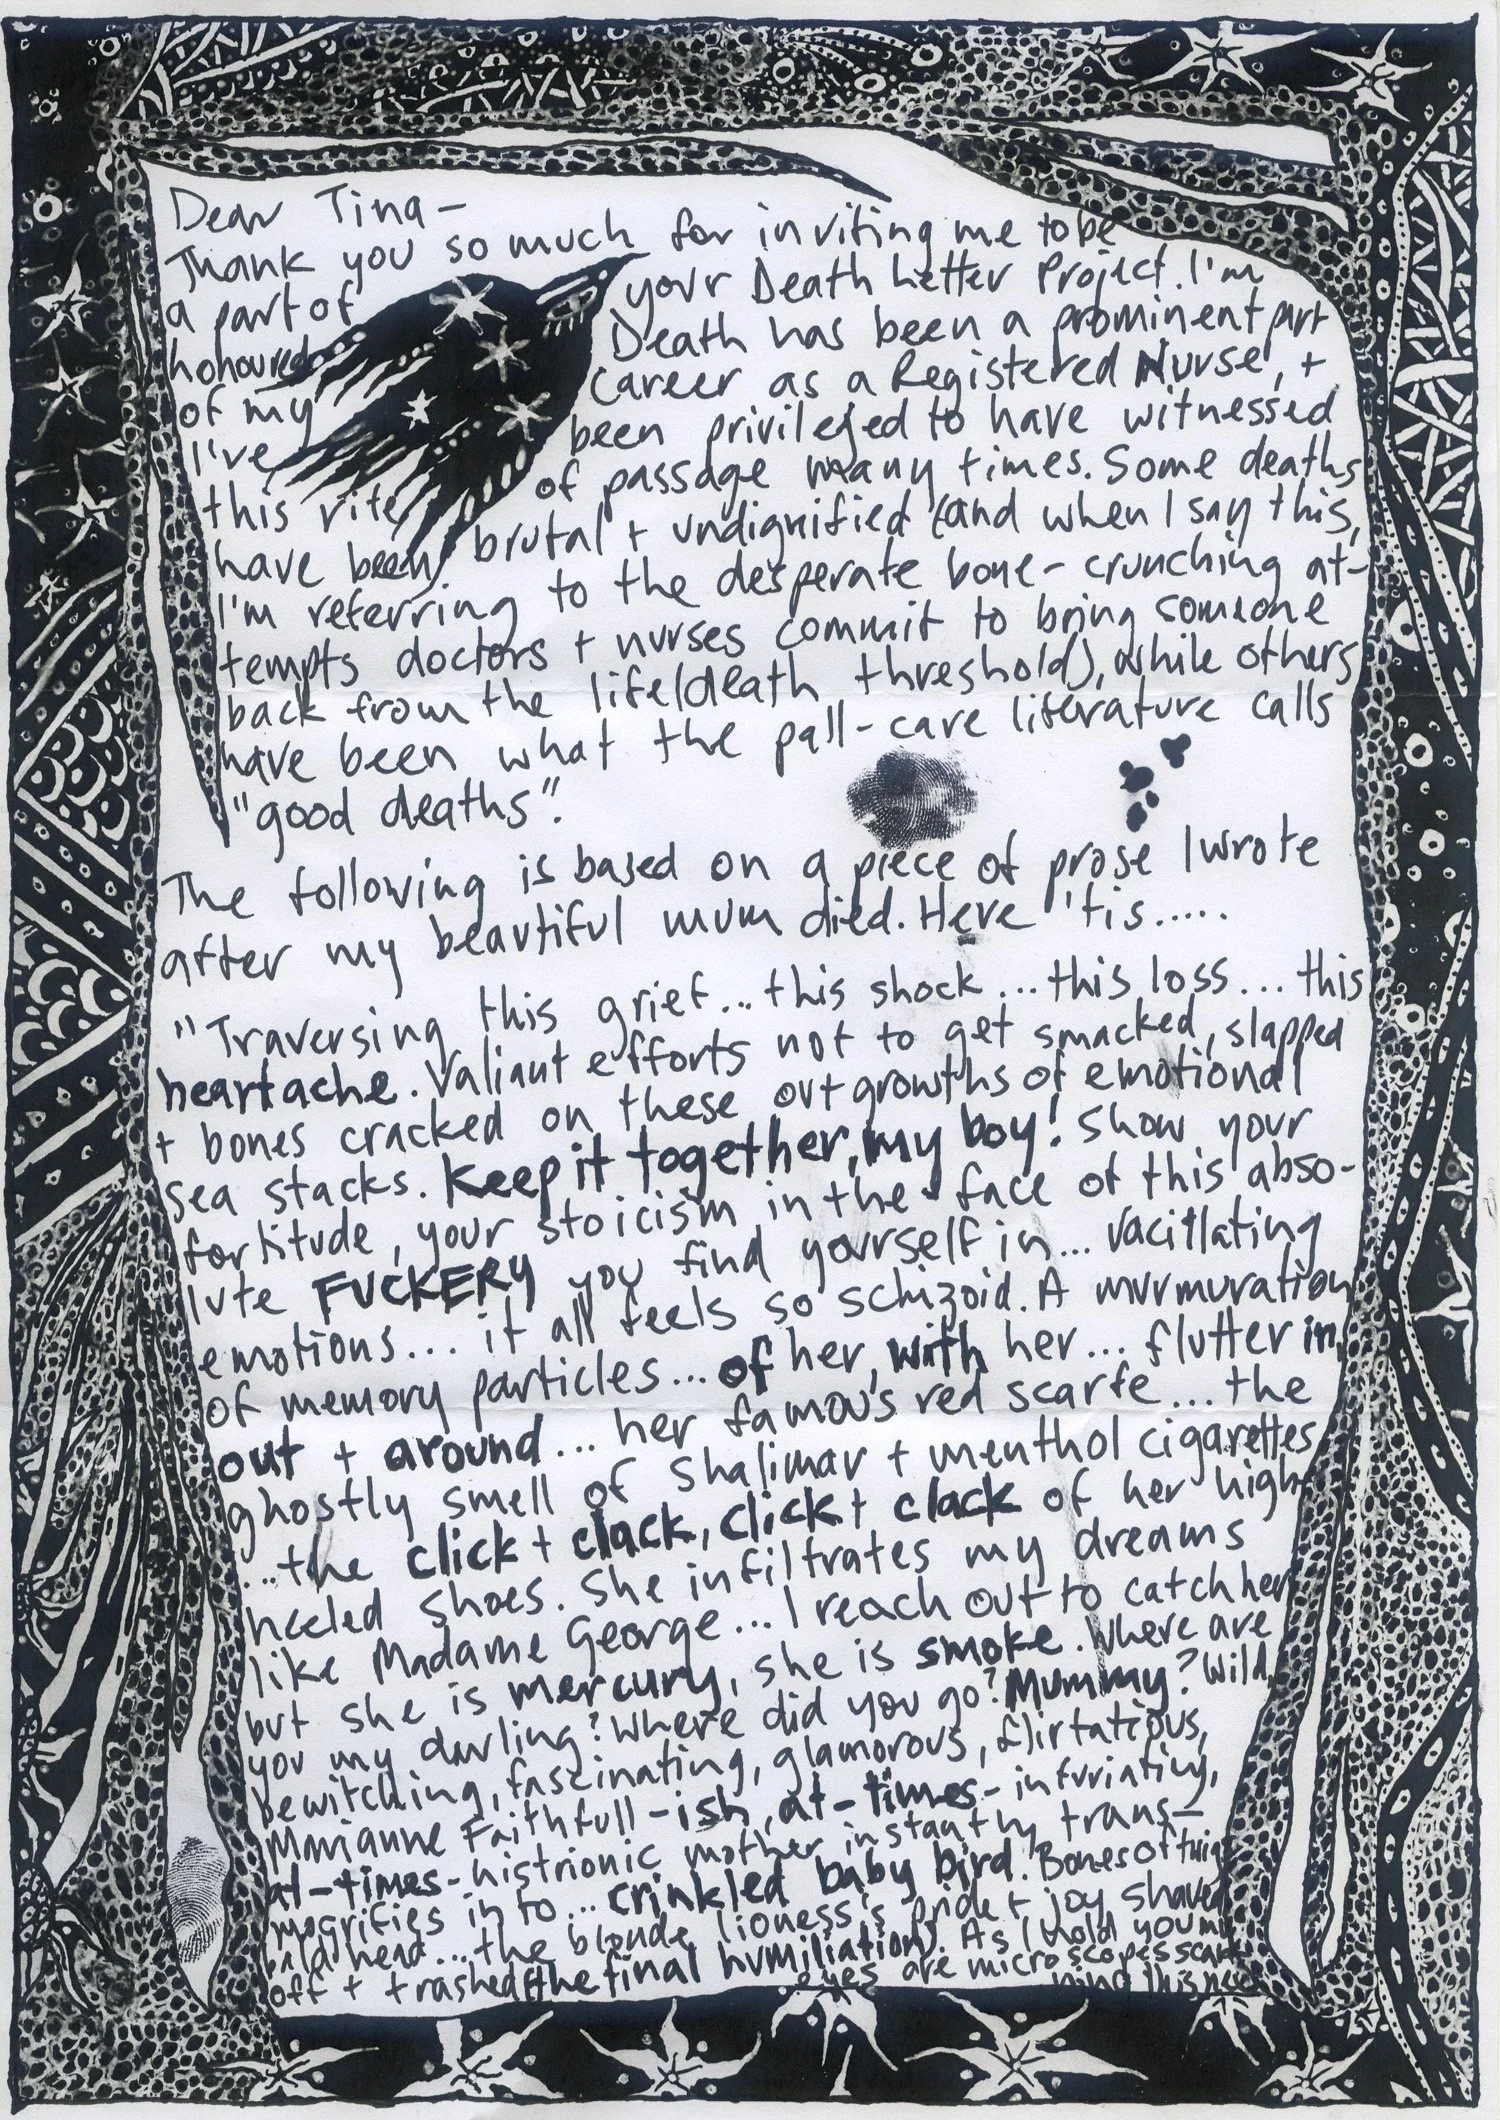 Dear Tina—
Thank you so much for inviting me to be
a part of your Death Letter Project. I'm
honoured Death has been a prominent part
of my career as a Registered Nurse, +
I've been privileged to have witnessed
this rite of passage many times. Some deaths
have been brutal + undignified (and when I say this,
I'm referring to the desperate bone-crunching at-
tempts doctors + nurses commit to bring someone
back from the life/death threshold), while others
have been what the pall-care literature calls
"good deaths".
The following is based on a piece of prose I wrote
after my beautiful mum died. Here 'tis.....
"Traversing this grief... this shock... this loss... this
heartache. Valiant efforts not to get smacked, slapped
+ bones cracked on these outgrowths of emotional
sea stacks. Keep it together, my boy! Show your
fortitude, your stoicism in the face of this abso-
lute FUCKERY you find yourself in... vacillating
emotions... it all feels so schizoid. A murmuration
of memory particles... of her, with her... flutter in,
out + around... her famous red scarfe... the
ghostly smell of Shalimar + menthol cigarettes
...the click + clack, click + clack of her high
heeled shoes. She infiltrates my dreams
like Madame George... I reach out to catch her
but she is mercury, she is smoke. Where are
you my darling? Where did you go? Mummy? Wild,
bewitching, fascinating, glamorous, flirtatious,
Marianne Faithfull-ish, at-times-infuriating,
at-times-histrionic mother instantly trans-
mogrifies in to... crinkled baby bird. Bones of twig
bald head... the blonde lioness's pride + joy shaved
off + trashed (the final humiliation). As I hold you my
eyes are microscopes scan-
ning this new